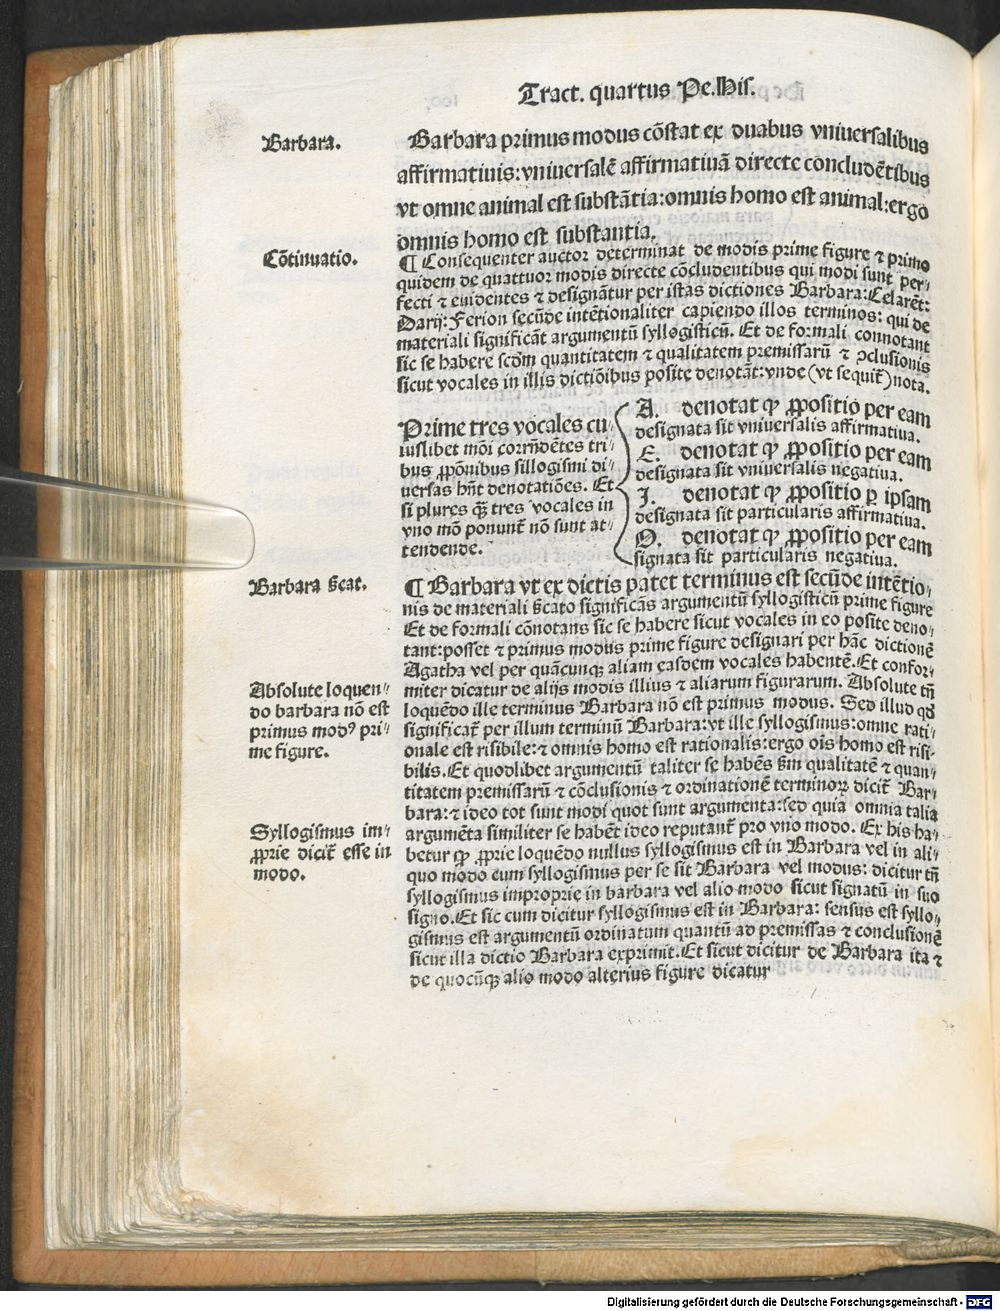 Tract. quartus Pe.His.
Barbara.
Barbara primus modus cōstat ex duabus vniuersalibus
affirmatiuis:vniuersalē affirmatiuā directe concludētibus
vt omne animal est substātia:omnis homo est animal:ergo
omnis homo est substantia.
Cōtinuatio.
¶ Consequenter auctor determinat de modis prime figure ⁊ primo
quidem de quattuor modis directe cōcludentibus qui modi sunt per⸗
fecti ⁊ euidentes ⁊ designātur per istas dictiones Barbara:Celarēt:
Darij:Ferion secūde intētionaliter capiendo illos terminos: qui de
materiali significāt argumentū syllogisticū. Et de formali connotant
sic se habere scōm quantitatem ⁊ qualitatem premissarū ⁊ ꝯclusionis
sicut vocales in illis dictiōibus posite denotāt:vnde (vt sequit̄) nota.
Prime tres vocales cu⸗
iuslibet mōi corrn̄dētes tri⸗
bus ꝓpōnibus sillogismi di⸗
uersas hn̄t denotatiōes. Et
si plures q̄ꝫ tres vocales in
vno mō ponunt̄ nō sunt at⸗
tendende.
A. denotat ꝙ ꝓpositio per eam
designata sit vniuersalis affirmatiua.
E. denotat ꝙ ꝓpositio per eam
designata sit vniuersalis negatiua.
I. denotat ꝙ ꝓpositio ꝑ ipsam
designata sit particularis affirmatiua.
O. denotat ꝙ ꝓpositio per eam
signata sit particularis negatiua.
Barbara s̄cat.
¶ Barbara vt ex dictis patet terminus est secūde intētio⸗
nis de materiali s̄cato significās argumentū syllogisticū prime figure
Et de formali cōnotans sic se habere sicut vocales in eo posite deno⸗
tant:posset ⁊ primus modus prime figure designari per hāc dictionē
Agatha vel per quācunqꝫ aliam easdem vocales habentē.Et confor⸗
miter dicatur de alijs modis illius ⁊ aliarum figurarum. Absolute tn̄
Absolute loquen⸗
do barbara nō est
primus modꝰ pri⸗
me figure.
loquēdo ille terminus Barbara nō est primus modus. Sed illud qd̄
significat̄ per illum terminū Barbara:vt ille syllogismus:omne rati⸗
onale est risibile:⁊ omnis homo est rationalis:ergo oīs homo est risi⸗
bilis.Et quodlibet argumentū taliter se habēs s̄m qualitatē ⁊ quan⸗
titatem premissarū ⁊ cōclusionis ⁊ ordinationē terminoꝝ dicit̄ Bar⸗
bara:⁊ ideo tot sunt modi quot sunt argumenta:sed quia omnia talia
Syllogismus im⸗
ꝓprie dicit̄ esse in
modo.
argumēta similiter se habēt ideo reputant̄ pro vno modo. Ex his ha⸗
betur ꝙ ꝓprie loquēdo nullus syllogismus est in Barbara vel in ali⸗
quo modo cum syllogismus per se sit Barbara vel modus: dicitur tn̄
syllogismus improprie in barbara vel alio modo sicut signatū in suo
signo.Et sic cum dicitur syllogismus est in Barbara: sensus est syllo⸗
gismus est argumentū ordinatum quantū ad premissas ⁊ conclusionē
sicut illa dictio Barbara exprimit.Et sicut dicitur de Barbara ita ⁊
de quocūqꝫ alio modo alterius figure dicatur
Digitalisierung gefördert durch die Deutsche Forschungsgemeinschaft - DFG